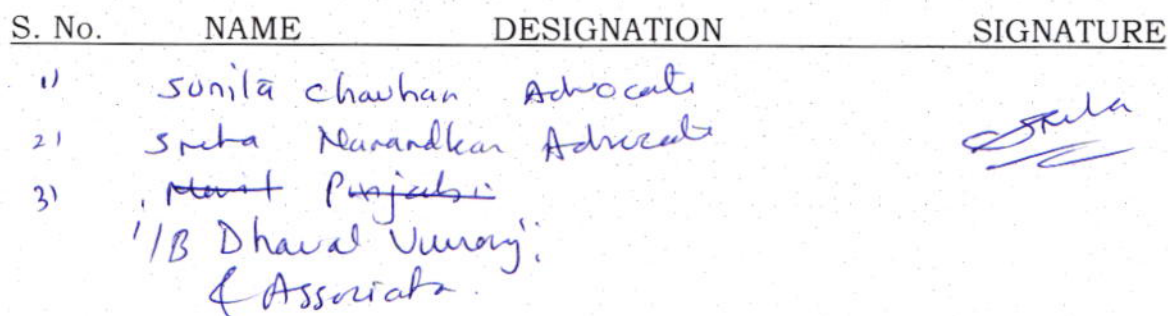 S. No. NAME DESIGNATION SIGNATURE
1) Sunila Chauhan Advocate
2) Sneha Advocate
3) Punjabi
I/B Dhaval Vussonji
& Associates.